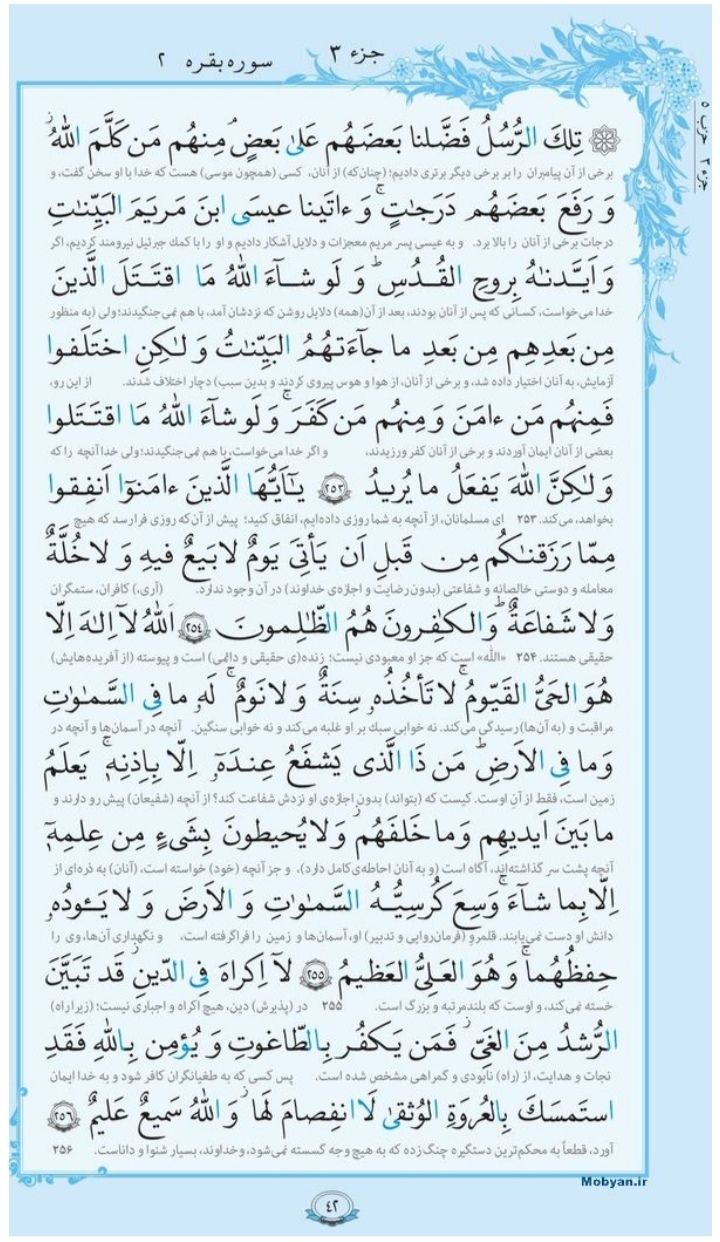 جزء ۳
سوره بقره ۲
حزب ۵
جزء ۳
تِلكَ الرُّسُلُ فَضَّلنا بَعضَهُم عَلىٰ بَعضٍ ۘ مِنهُم مَن كَلَّمَ اللّٰهُ ۖ
برخی از آن پیامبران را بر برخی دیگر برتری دادیم؛ (چنان‌که) از آنان، کسی (همچون موسی) هست که خدا با او سخن گفت، و
وَ رَفَعَ بَعضَهُم دَرَجٰتٍ ۚ وَ ءاتَينا عيسَى ابنَ مَريَمَ البَيِّنٰتِ
درجات برخی از آنان را بالا برد. و به عیسی پسر مریم معجزات و دلایل آشکار دادیم و او را با کمک جبرئیل نیرومند کردیم، اگر
وَ اَيَّدنٰهُ بِروحِ القُدُسِ ۗ وَ لَو شآءَ اللّٰهُ مَا اقتَتَلَ الَّذينَ
خدا می‌خواست، کسانی که پس از آنان بودند، بعد از آن (همه) دلایل روشن که نزدشان آمد، با هم نمی‌جنگیدند؛ ولی (به منظور
مِن بَعدِهِم مِن بَعدِ ما جآءَتهُمُ البَيِّنٰتُ وَ لٰكِنِ اختَلَفوا
آزمایش، به آنان اختیار داده شد، و برخی از آنان، از هوا و هوس پیروی کردند و بدین سبب) دچار اختلاف شدند. از این رو،
فَمِنهُم مَن ءامَنَ وَ مِنهُم مَن كَفَرَ ۚ وَ لَو شآءَ اللّٰهُ مَا اقتَتَلوا
بعضی از آنان ایمان آوردند و برخی از آنان کفر ورزیدند، و اگر خدا می‌خواست، با هم نمی‌جنگیدند؛ ولی خدا آنچه را که
وَ لٰكِنَّ اللّٰهَ يَفعَلُ ما يُريدُ ﴿۲۵۳﴾ يٰٓاَيُّهَا الَّذينَ ءامَنوٓا اَنفِقوا
بخواهد، می‌کند. ۲۵۳ ای مسلمانان، از آنچه به شما روزی داده‌ایم، انفاق کنید؛ پیش از آن‌که روزی فرا رسد که هیچ
مِمّا رَزَقنٰكُم مِن قَبلِ اَن يَأتِىَ يَومٌ لا بَيعٌ فيهِ وَ لا خُلَّةٌ
معامله و دوستی خالصانه و شفاعتی (بدون رضایت و اجازه‌ی خداوند) در آن وجود ندارد. (آری،) کافران، ستمگران
وَ لا شَفاعَةٌ ۗ وَ الكٰفِرونَ هُمُ الظّٰلِمونَ ﴿۲۵۴﴾ اَللّٰهُ لآ اِلٰهَ اِلّا
حقیقی هستند. ۲۵۴ «الله» است که جز او معبودی نیست؛ زنده(ی حقیقی و دائمی) است و پیوسته (از آفریده‌هایش)
هُوَ الحَىُّ القَيّومُ ۚ لا تَأخُذُهٗ سِنَةٌ وَ لا نَومٌ ۚ لَهٗ ما فِى السَّمٰوٰتِ
مراقبت و (به آن‌ها) رسیدگی می‌کند. نه خوابی سبک بر او غلبه می‌کند و نه خوابی سنگین. آنچه در آسمان‌ها و آنچه در
وَ ما فِى الاَرضِ ۗ مَن ذَا الَّذى يَشفَعُ عِندَهٗٓ اِلّا بِاِذنِهٖ ۚ يَعلَمُ
زمین است، فقط از آن اوست. کیست که (بتواند) بدون اجازه‌ی او نزدش شفاعت کند؟ از آنچه (شفیعان) پیش رو دارند و
ما بَينَ اَيديهِم وَ ما خَلفَهُم ۖ وَ لا يُحيطونَ بِشَىءٍ مِن عِلمِهٖٓ
آنچه پشت سر گذاشته‌اند، آگاه است (و به آنان احاطه‌ی کامل دارد)، و جز آنچه (خود) خواسته است، (آنان) به ذره‌ای از
اِلّا بِما شآءَ ۚ وَسِعَ كُرسِيُّهُ السَّمٰوٰتِ وَ الاَرضَ ۖ وَ لا يَـٔودُهٗ
دانش او دست نمی‌یابند. قلمروِ (فرمان‌روایی و تدبیر) او، آسمان‌ها و زمین را فرا گرفته است، و نگهداری آن‌ها، وی را
حِفظُهُما ۚ وَ هُوَ العَلِىُّ العَظيمُ ﴿۲۵۵﴾ لآ اِكراهَ فِى الدّينِ ۖ قَد تَبَيَّنَ
خسته نمی‌کند، و اوست که بلندمرتبه و بزرگ است. ۲۵۵ در (پذیرش) دین، هیچ اکراه و اجباری نیست؛ (زیرا راه)
الرُّشدُ مِنَ الغَىِّ ۚ فَمَن يَكفُر بِالطّاغوتِ وَ يُؤمِن بِاللّٰهِ فَقَدِ
نجات و هدایت، از (راه) نابودی و گمراهی مشخص شده است. پس کسی که به طغیانگران کافر شود و به خدا ایمان
استَمسَكَ بِالعُروَةِ الوُثقىٰ لَا انفِصامَ لَها ۗ وَ اللّٰهُ سَميعٌ عَليمٌ ﴿۲۵۶﴾
آورد، قطعاً به محکم‌ترین دستگیره چنگ زده که به هیچ وجه گسسته نمی‌شود، و خداوند، بسیار شنوا و داناست. ۲۵۶
Mobyan.ir
٤٢